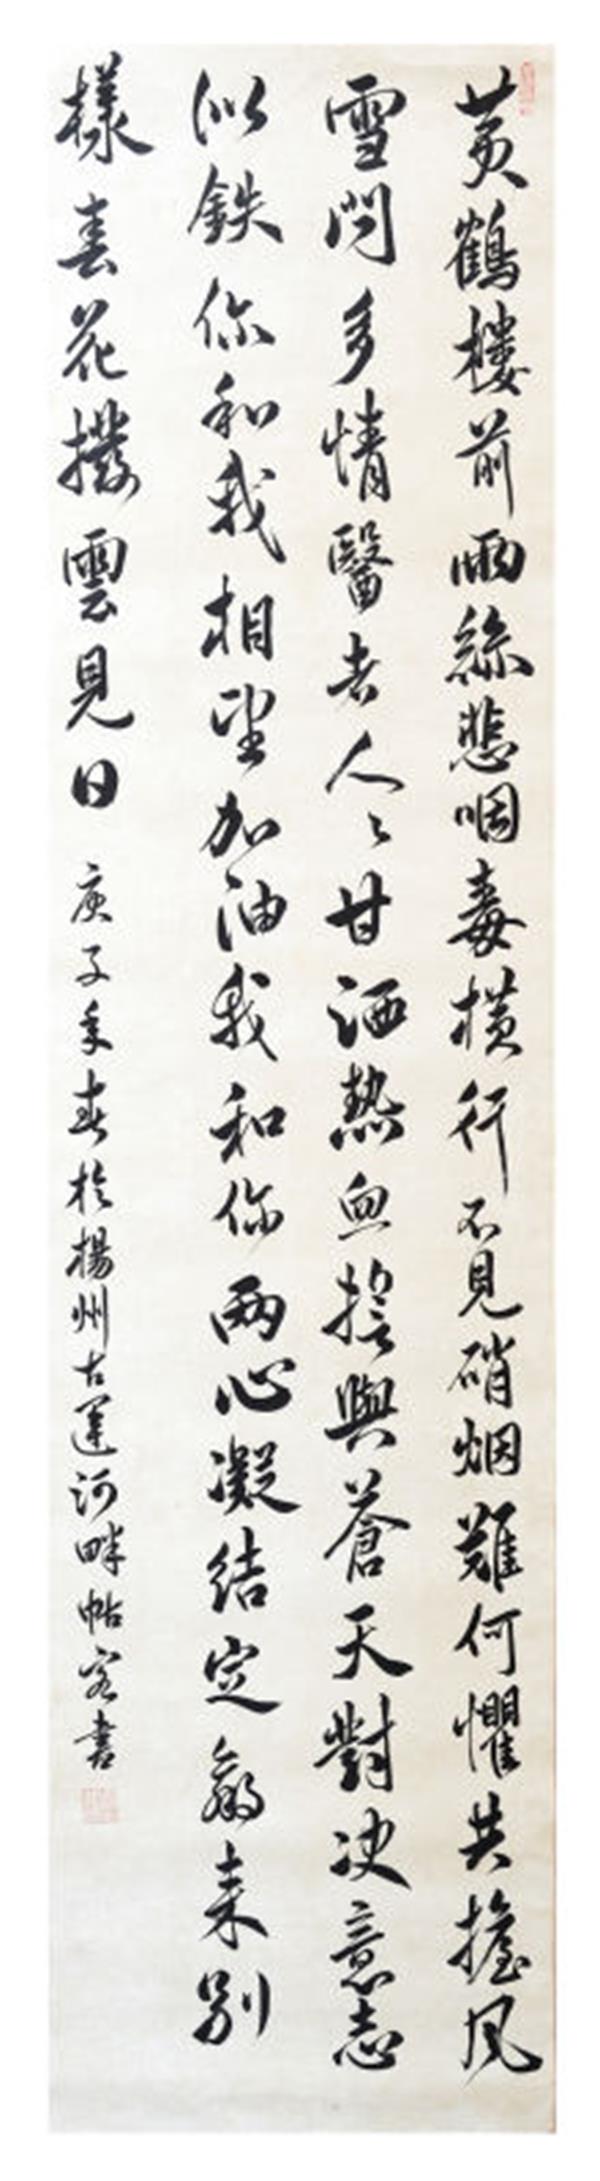 黄鶴樓前雨絲悲咽毒橫行不見硝烟難何懼共擔風
雪問多情醫者人々甘洒熱血搭與蒼天對决意志
似鉄你和我相望加油我和你兩心凝結定贏来别
樣春花撥雲見日
庚子年春於揚州古運河畔帖客書